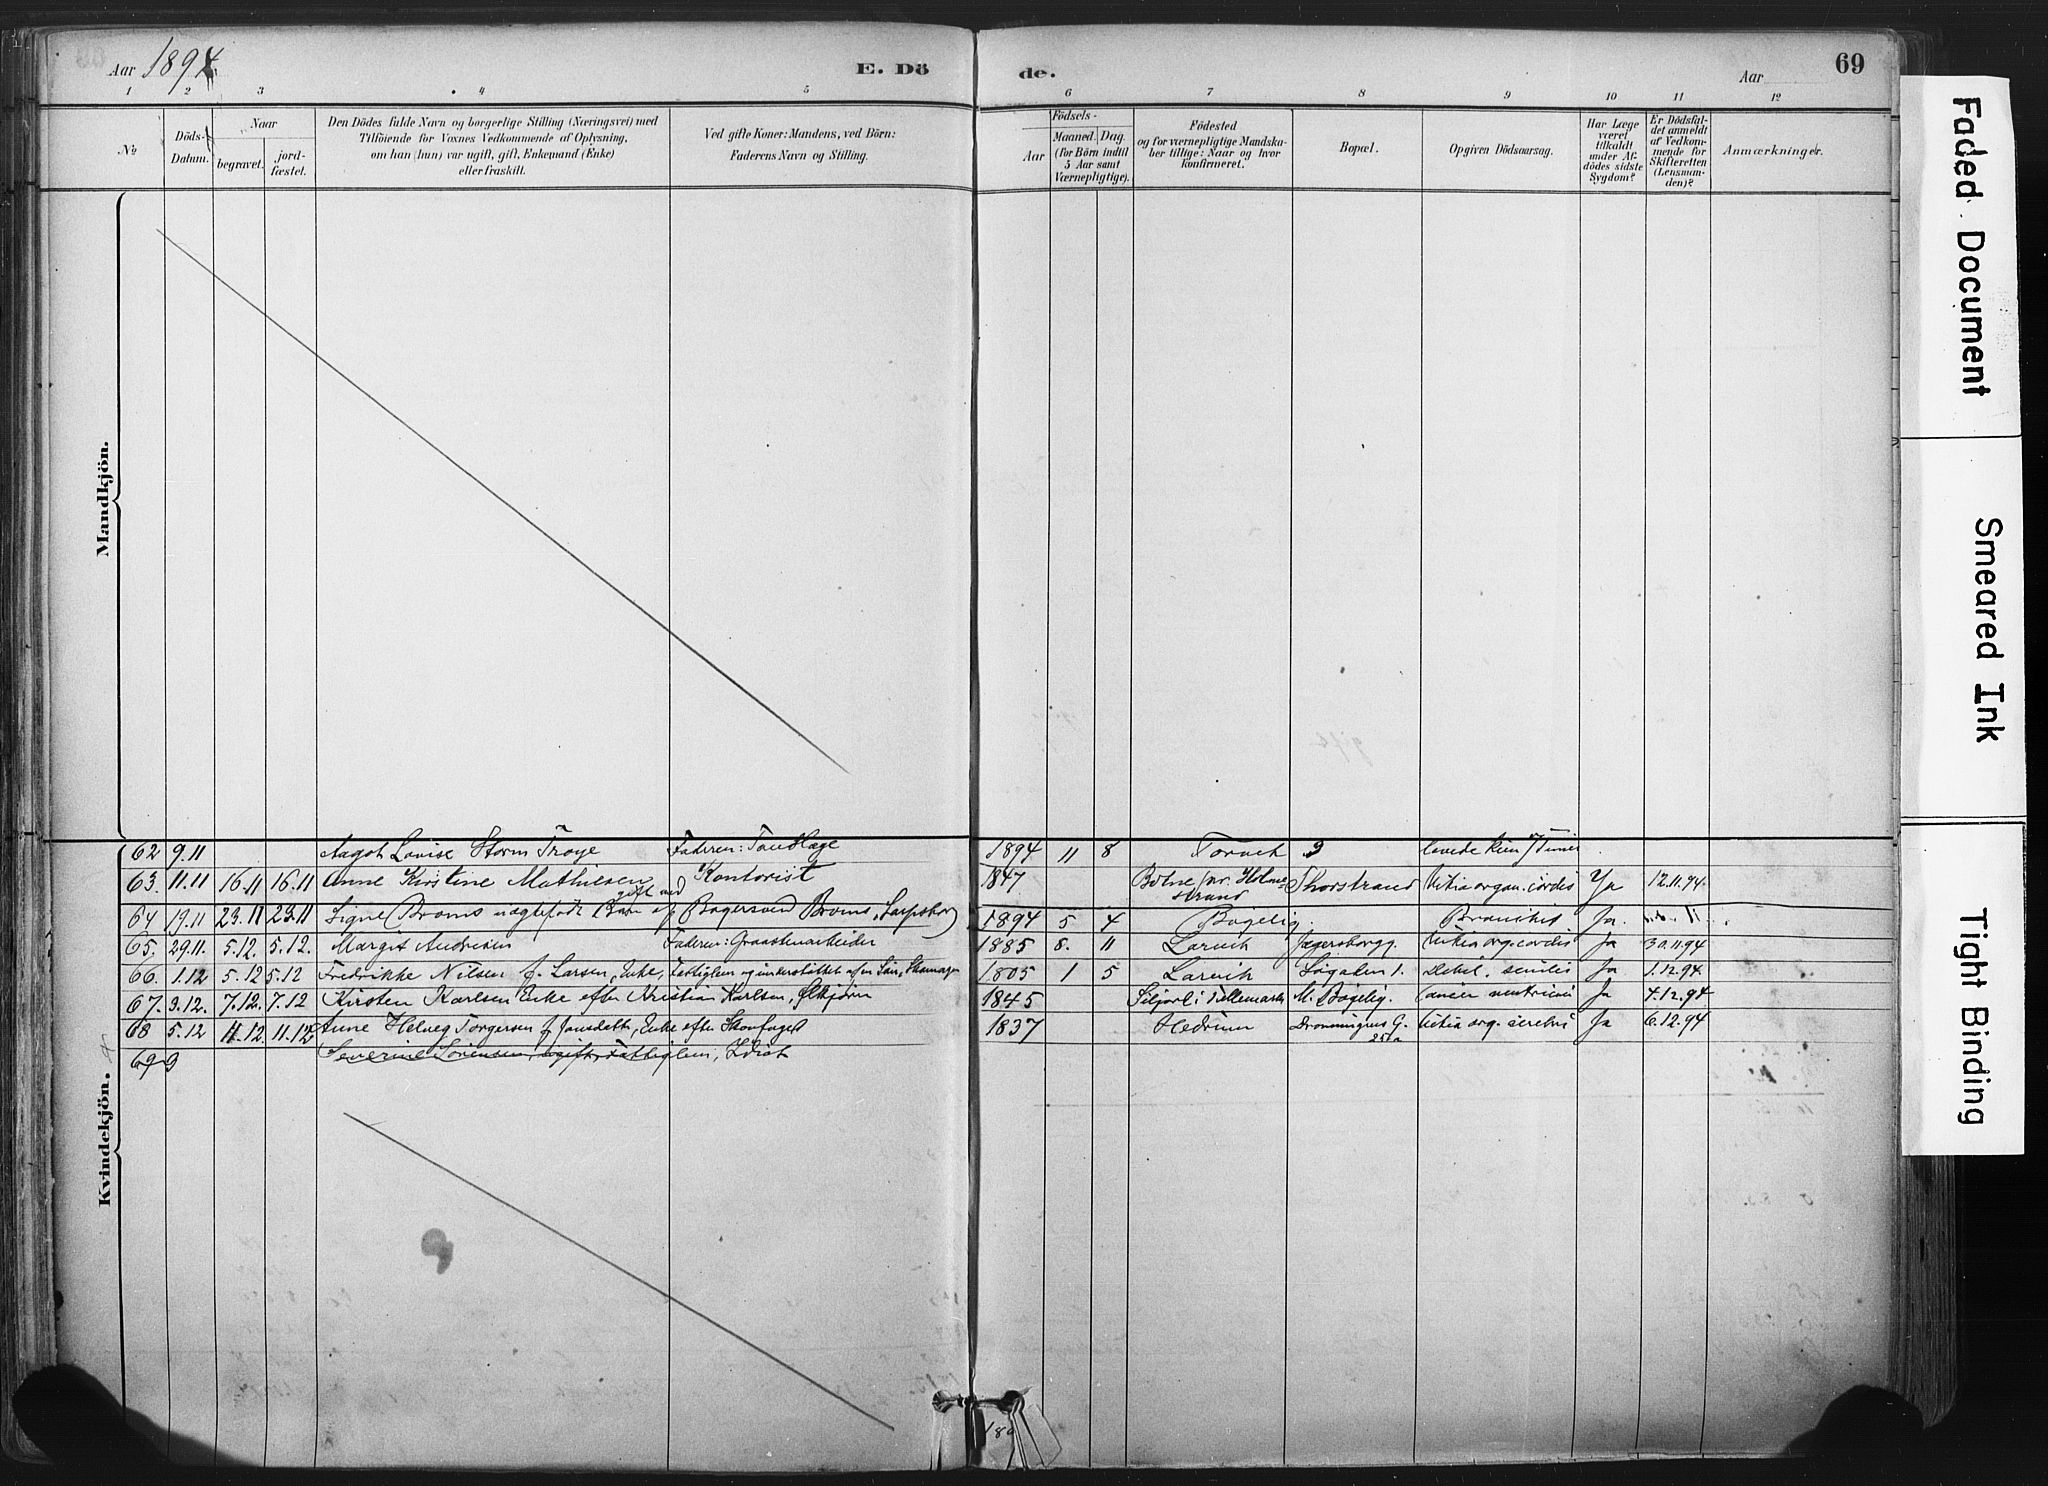 Aar 1894. E. Döde. Aar 69
1 2 3 4 5 6 7 8 9 10 11 12
No
Döds-Datum.
Naar begravet. jordfæstet.
Den Dödes fulde Navn og borgerlige Stilling (Næringsvei) med Tilföiende for Voxnes Vedkommende af Oplysning, om han (hun) var ugift, gift, Enkemand (Enke) eller fraskilt.
Ved gifte Koner: Mandens, ved Börn: Faderens Navn og Stilling.
Födsels-
Aar Maaned. Dag. (for Börn indtil 5 Aar samt Værnepligtige).
Födested og for værnepligtige Mandskaber tillige: Naar og hvor konfirmeret.
Bopæl.
Opgiven Dödsaarsag.
Har Læge været tilkaldt under Afdödes sidste Sygdom?
Er Dödsfaldet anmeldt af Vedkommende for Skifteretten (Lensmanden)?
Anmærkninger.
Mandkjön.
Kvindekjön.
62 9.11 Aagot Lovise Storm Troye Faderen: Tandlæge 1894 11 8 Torvet 3 levede kun 7 Timer
63. 11.11 16.11 16.11 Anne Kirstine Mathiesen gift med Kontorist 1847 Botne pr. Holmestrand Thorstrand Vitia organ. cordis Ja 12.11.94.
64 19.11 23.11 23.11 Signe Broms uægtefødt Barn af Bagersvend Broms, Sarpsborg 1894 5 4 Bøgelig Bronchit Ja
65. 29.11. 5.12. 5.12. Margit Andresen Faderen: Graastenarbeider 1885 8. 11 Larvik Jegersborgg. Vitia org. cordis Ja 30.11.94
66. 1.12 5.12 5.12 Fredrikke Nilsen f. Larsen, Enke, Fattiglem og understøttet af en Søn, Skomager 1805 1 5 Larvik Søgaden 1. Debil. senilis Ja 1.12.94.
67. 3.12. 7.12. 7.12 Kirsten Karlsen Enke efter Kristian Karlsen, 1845 Siljord i Tellemarken M. Bøgelig. Cancer ventriculi Ja 4.12.94
68 5.12 11.12 11.12 Anne Helvig Torgersen f. Jonsdatt., Enke efter Skonfoged 1837 Hedrum Dronningens G. 25 a Vitia org. cerebri Ja 6.12.94
69 9 Severine Sørensen, ugift, Fattiglem, Idiot
Faded Document
Smeared Ink
Tight Binding